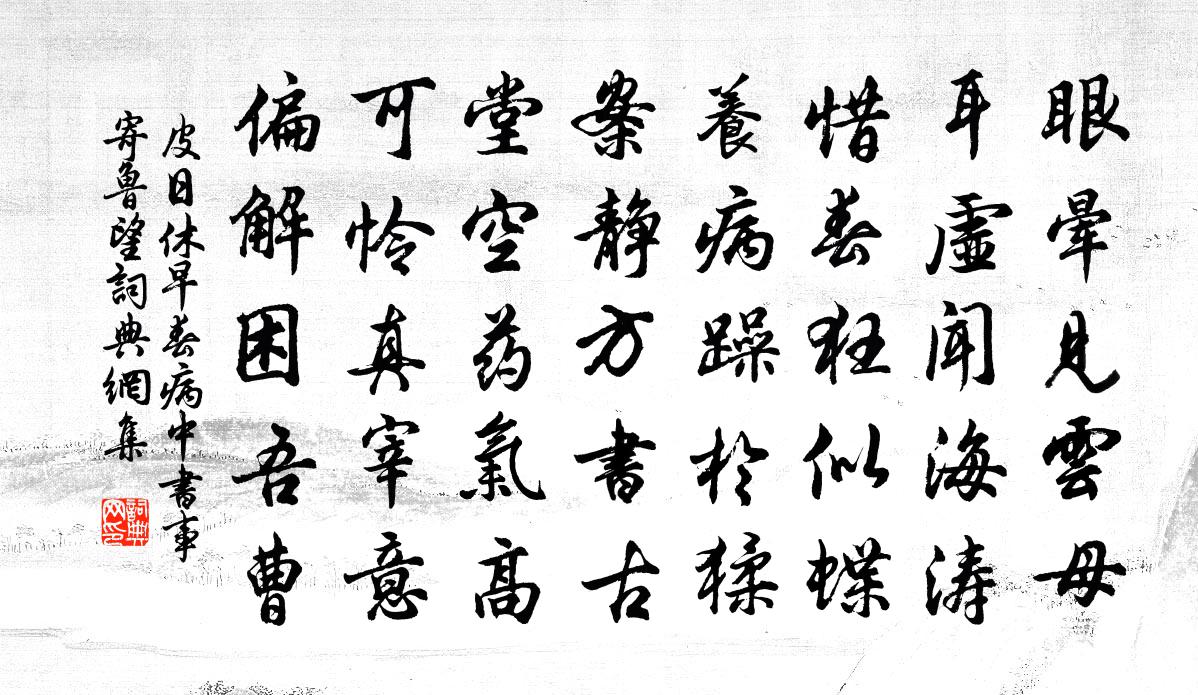 眼暈見雲母
耳虛聞海濤
惜春狂似蝶
養病躁於猱
案靜方書古
堂空药氣高
可怜真宰意
偏解困吾曹
皮日休早春病中書事
寄魯望詞典網集
詞典网印